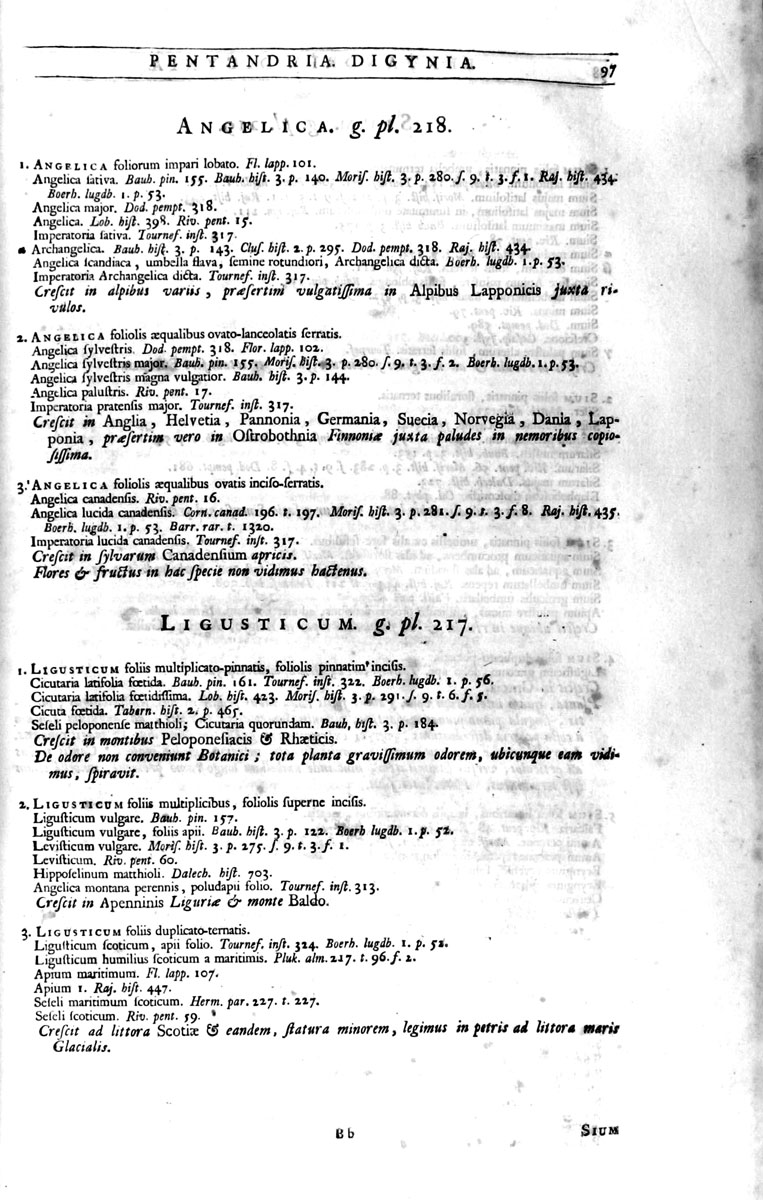 PENTANDRIA. DIGYNIA. 97
ANGELICA. g. pl. 218.
1. ANGELICA foliorum impari lobato. Fl. lapp. 101.
Angelica ſativa. Baub. pin. 155. Baub. hiſt. 3. p. 140. Moriſ. hiſt. 3. p. 280. ſ. 9. t. 3. f. 1. Raj. hiſt. 434.
Boerh. lugdb. 1. p. 53.
Angelica major. Dod. pempt. 318.
Angelica. Lob. hiſt. 398. Riv. pent. 15.
Imperatoria ſativa. Tournef. inſt. 317.
Archangelica. Baub. hiſt. 3. p. 143. Cluſ. hiſt. 2. p. 295. Dod. pempt. 318. Raj. hiſt. 434.
Angelica ſcandiaca, umbella flava, ſemine rotundiori, Archangelica dicta. Boerh. lugdb. 1. p. 53.
Imperatoria Archangelica dicta. Tournef. inſt. 317.
Creſcit in alpibus variis, præſertim vulgatiſſima in Alpibus Lapponicis juxta ri-
vulos.
2. ANGELICA foliolis æqualibus ovato-lanceolatis ſerratis.
Angelica ſylveſtris. Dod. pempt. 318. Flor. lapp. 102.
Angelica ſylveſtris major. Baub. pin. 155. Moriſ. hiſt. 3. p. 280. ſ. 9. t. 3. f. 2. Boerh. lugdb. 1. p. 53.
Angelica ſylveſtris magna vulgatior. Baub. hiſt. 3. p. 144.
Angelica paluſtris. Riv. pent. 17.
Imperatoria pratenſis major. Tournef. inſt. 317.
Creſcit in Anglia, Helvetia, Pannonia, Germania, Suecia, Norvegia, Dania, Lap-
ponia, præſertim vero in Oſtrobothnia Finnoniæ juxta paludes in nemoribus copio-
ſiſſima.
3. ANGELICA foliolis æqualibus ovatis inciſo-ſerratis.
Angelica canadenſis. Riv. pent. 16.
Angelica lucida canadenſis. Corn. canad. 196. t. 197. Moriſ. hiſt. 3. p. 281. ſ. 9. t. 3. f. 8. Raj. hiſt. 435.
Boerh. lugdb. 1. p. 53. Barr. rar. t. 1320.
Imperatoria lucida canadenſis. Tournef. inſt. 317.
Creſcit in ſylvarum Canadenſium apricis.
Flores & fructus in hac ſpecie non vidimus hactenus.
LIGUSTICUM. g. pl. 217.
1. LIGUSTICUM foliis multiplicato-pinnatis, foliolis pinnatim inciſis.
Cicutaria latifolia fœtida. Baub. pin. 161. Tournef. inſt. 322. Boerh. lugdb. 1. p. 56.
Cicutaria latifolia fœtidiſſima. Lob. hiſt. 423. Moriſ. hiſt. 3. p. 291. ſ. 9. t. 6. f. 5.
Cicuta fœtida. Tabarn. hiſt. 2. p. 465.
Seſeli peloponenſe matthioli; Cicutaria quorundam. Baub. hiſt. 3. p. 184.
Creſcit in montibus Peloponeſiacis & Rhæticis.
De odore non conveniunt Botanici; tota planta graviſſimum odorem, ubicunque eam vidi-
mus, ſpiravit.
2. LIGUSTICUM foliis multiplicibus, foliolis ſuperne inciſis.
Liguſticum vulgare. Baub. pin. 157.
Liguſticum vulgare, foliis apii. Baub. hiſt. 3. p. 122. Boerh lugdb. 1. p. 52.
Leviſticum vulgare. Moriſ. hiſt. 3. p. 275. ſ. 9. t. 3. f. 1.
Leviſticum. Riv. pent. 60.
Hippoſelinum matthioli. Dalech. hiſt. 703.
Angelica montana perennis, poludapii folio. Tournef. inſt. 313.
Creſcit in Apenninis Liguriæ & monte Baldo.
3. LIGUSTICUM foliis duplicato-ternatis.
Liguſticum ſcoticum, apii folio. Tournef. inſt. 324. Boerh. lugdb. 1. p. 52.
Liguſticum humilius ſcoticum a maritimis. Pluk. alm. 217. t. 96. f. 2.
Apium maritimum. Fl. lapp. 107.
Apium 1. Raj. hiſt. 447.
Seſeli maritimum ſcoticum. Herm. par. 227. t. 227.
Seſeli ſcoticum. Riv. pent. 59.
Creſcit ad littora Scotiæ & eandem, ſtatura minorem, legimus in petris ad littora maris
Glacialis.
Bb SIUM